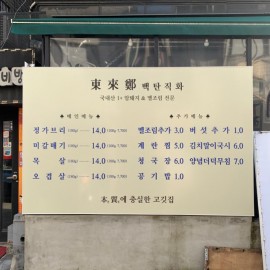 東來鄭 백탄직화
국내산 1+ 암퇘지 & 벌조탄 전문
♣ 메인메뉴 ♣
정가브리 14.0
미갈매기 14.0
목살 14.0
오겹살 14.0
♣ 추가메뉴 ♣
벌조림추가 3.0 버섯추가 1.0
계란찜 5.0 김치말이국시 6.0
청국장 6.0 양념더덕무침 7.0
공기밥 1.0
本質에 충실한 고깃집
비방